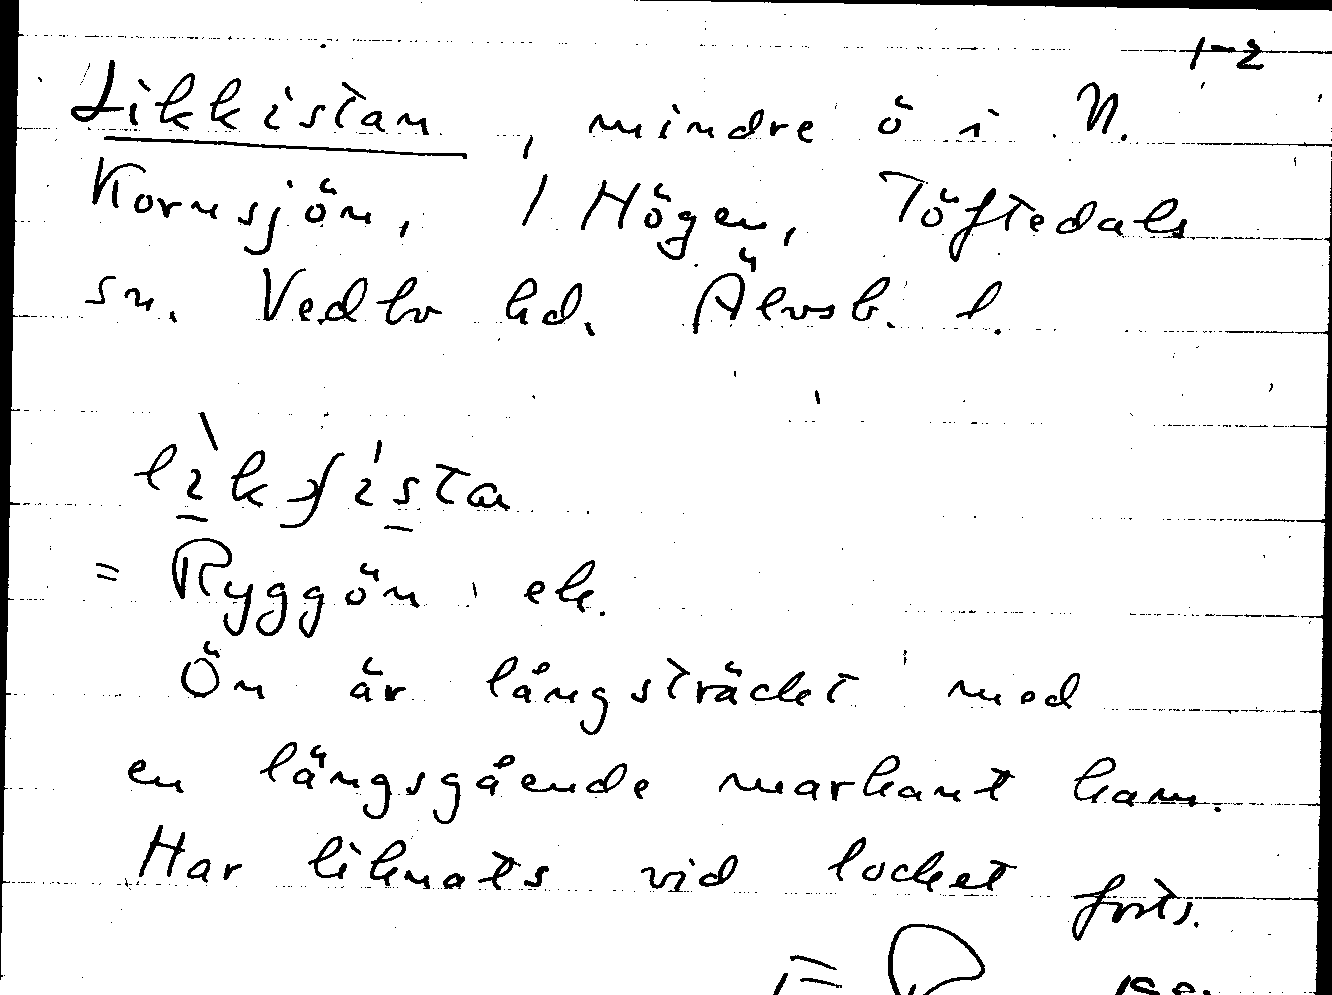 1-2
Likkistan, mindre ö i N.
Kornsjön, 1 Högen, Töftedals
sn. Vedbo hd. Älvsb. l.
= Ryggön ek.
Ön är långsträckt med
en längsgående markant kam.
Har liknats vid locket forts.